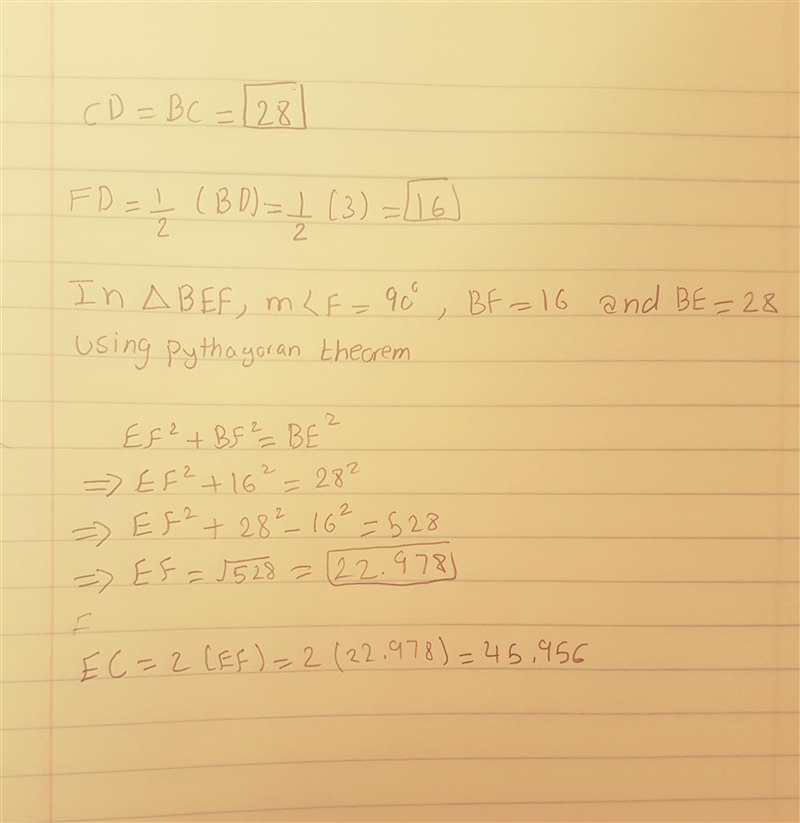 CD = BC = 28
FD = 1/2 (BD) = 1/2 (3) = 16
In △BEF, m<F = 90°, BF = 16 and BE = 28
using pythagoran theorem
EF² + BF² = BE²
⇒ EF² + 16² = 28²
⇒ EF² + 28² - 16² = 528
⇒ EF = √528 = 22.978
F
EC = 2 (EF) = 2 (22.978) = 45.956